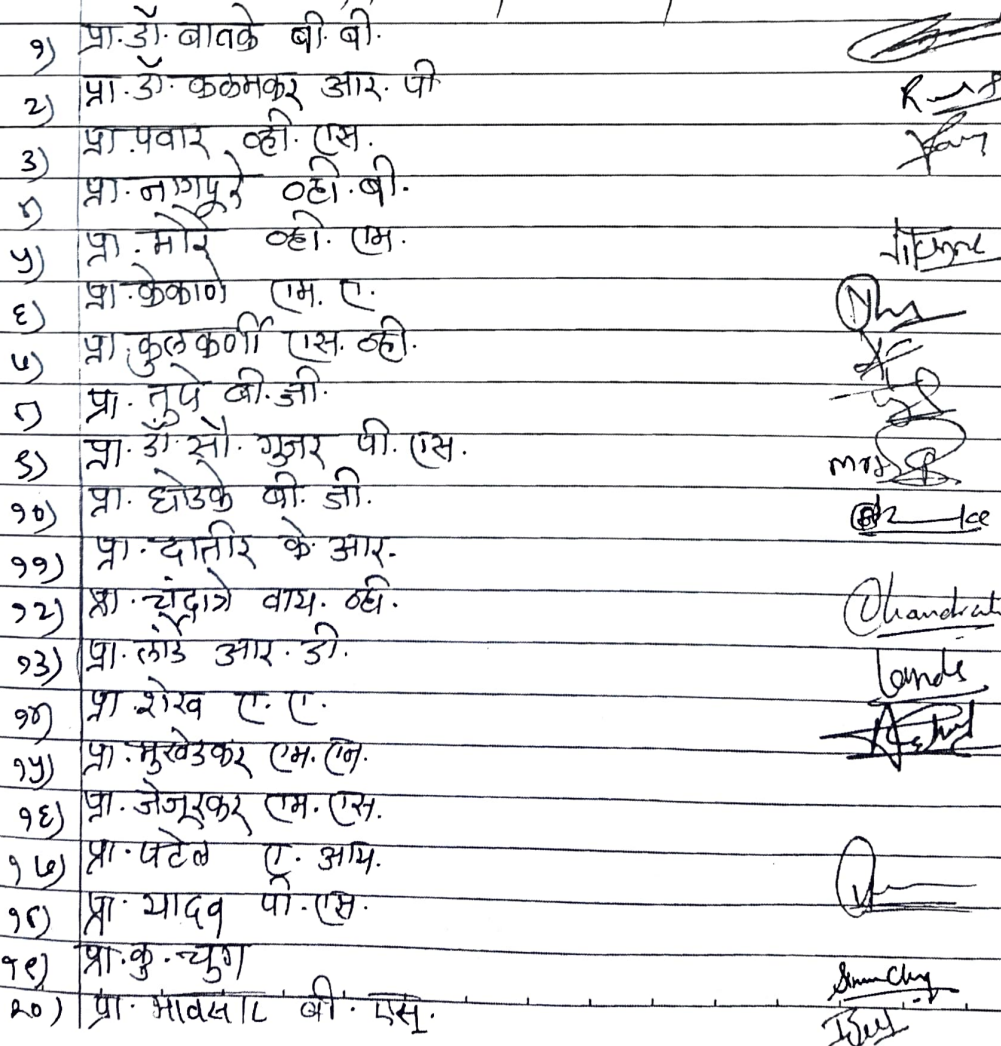 १) प्रा.डॉ. बावके बी.बी.
२) प्रा.डॉ. कळमकर आर. पी
३) प्रा.पवार व्ही. एस.
४) प्रा.नागपूरे व्ही.बी.
५) प्रा. मोरे व्ही. एम.
६) प्रा.केकाणे एम. ए.
७) प्रा.कुलकर्णी एस. व्ही.
८) प्रा. तुपे बी.जी.
९) प्रा. डॉ.सौ. गुजर पी. एस. mrs
१०) प्रा. घोडके बी. जी.
११) प्रा. दातीर के. आर.
१२) प्रा. चंद्रात्रे वाय. व्ही. Chandrat
१३) प्रा. लोंढे आर. डी. Londe
१४) प्रा.शेख ए. ए.
१५) प्रा.मुखेडकर एम.एन.
१६) प्रा. जेजूरकर एम.एस.
१७) प्रा.पटेल ए. आय.
१८) प्रा. यादव पी.एस.
१९) प्रा.कु. चुग
२०) प्रा. भावसार बी. एस.